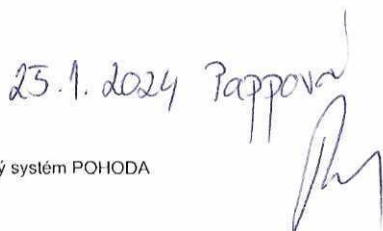 25.1.2024 Pappová
ý systém POHODA